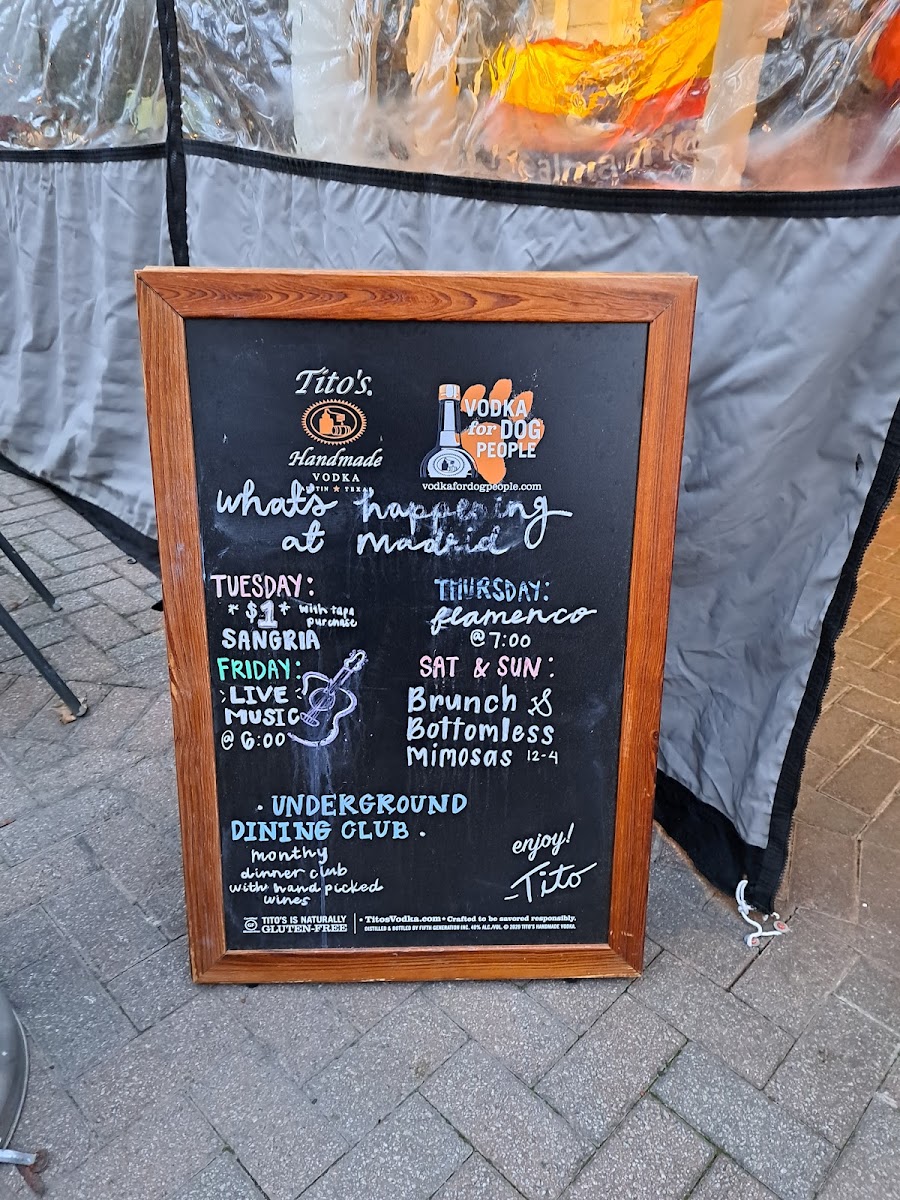 Tito's
Handmade
VODKA
TIN ★ TEXA
VODKA
for DOG
PEOPLE
vodkafordogpeople.com
what's happening
at Madrid
TUESDAY:
*$1* with tapa
purchase
SANGRIA
THURSDAY:
flamenco
@ 7:00
FRIDAY:
LIVE
MUSIC
@ 6:00
SAT & SUN:
Brunch &
Bottomless
Mimosas 12-4
· UNDERGROUND
DINING CLUB ·
monthy
dinner club
with hand picked
wines
enjoy!
-Tito
TITO'S IS NATURALLY
GLUTEN-FREE
• TitosVodka.com • Crafted to be savored responsibly.
DISTILLED & BOTTLED BY FIFTH GENERATION INC. 40% ALC./VOL. © 2020 TITO'S HANDMADE VODKA.